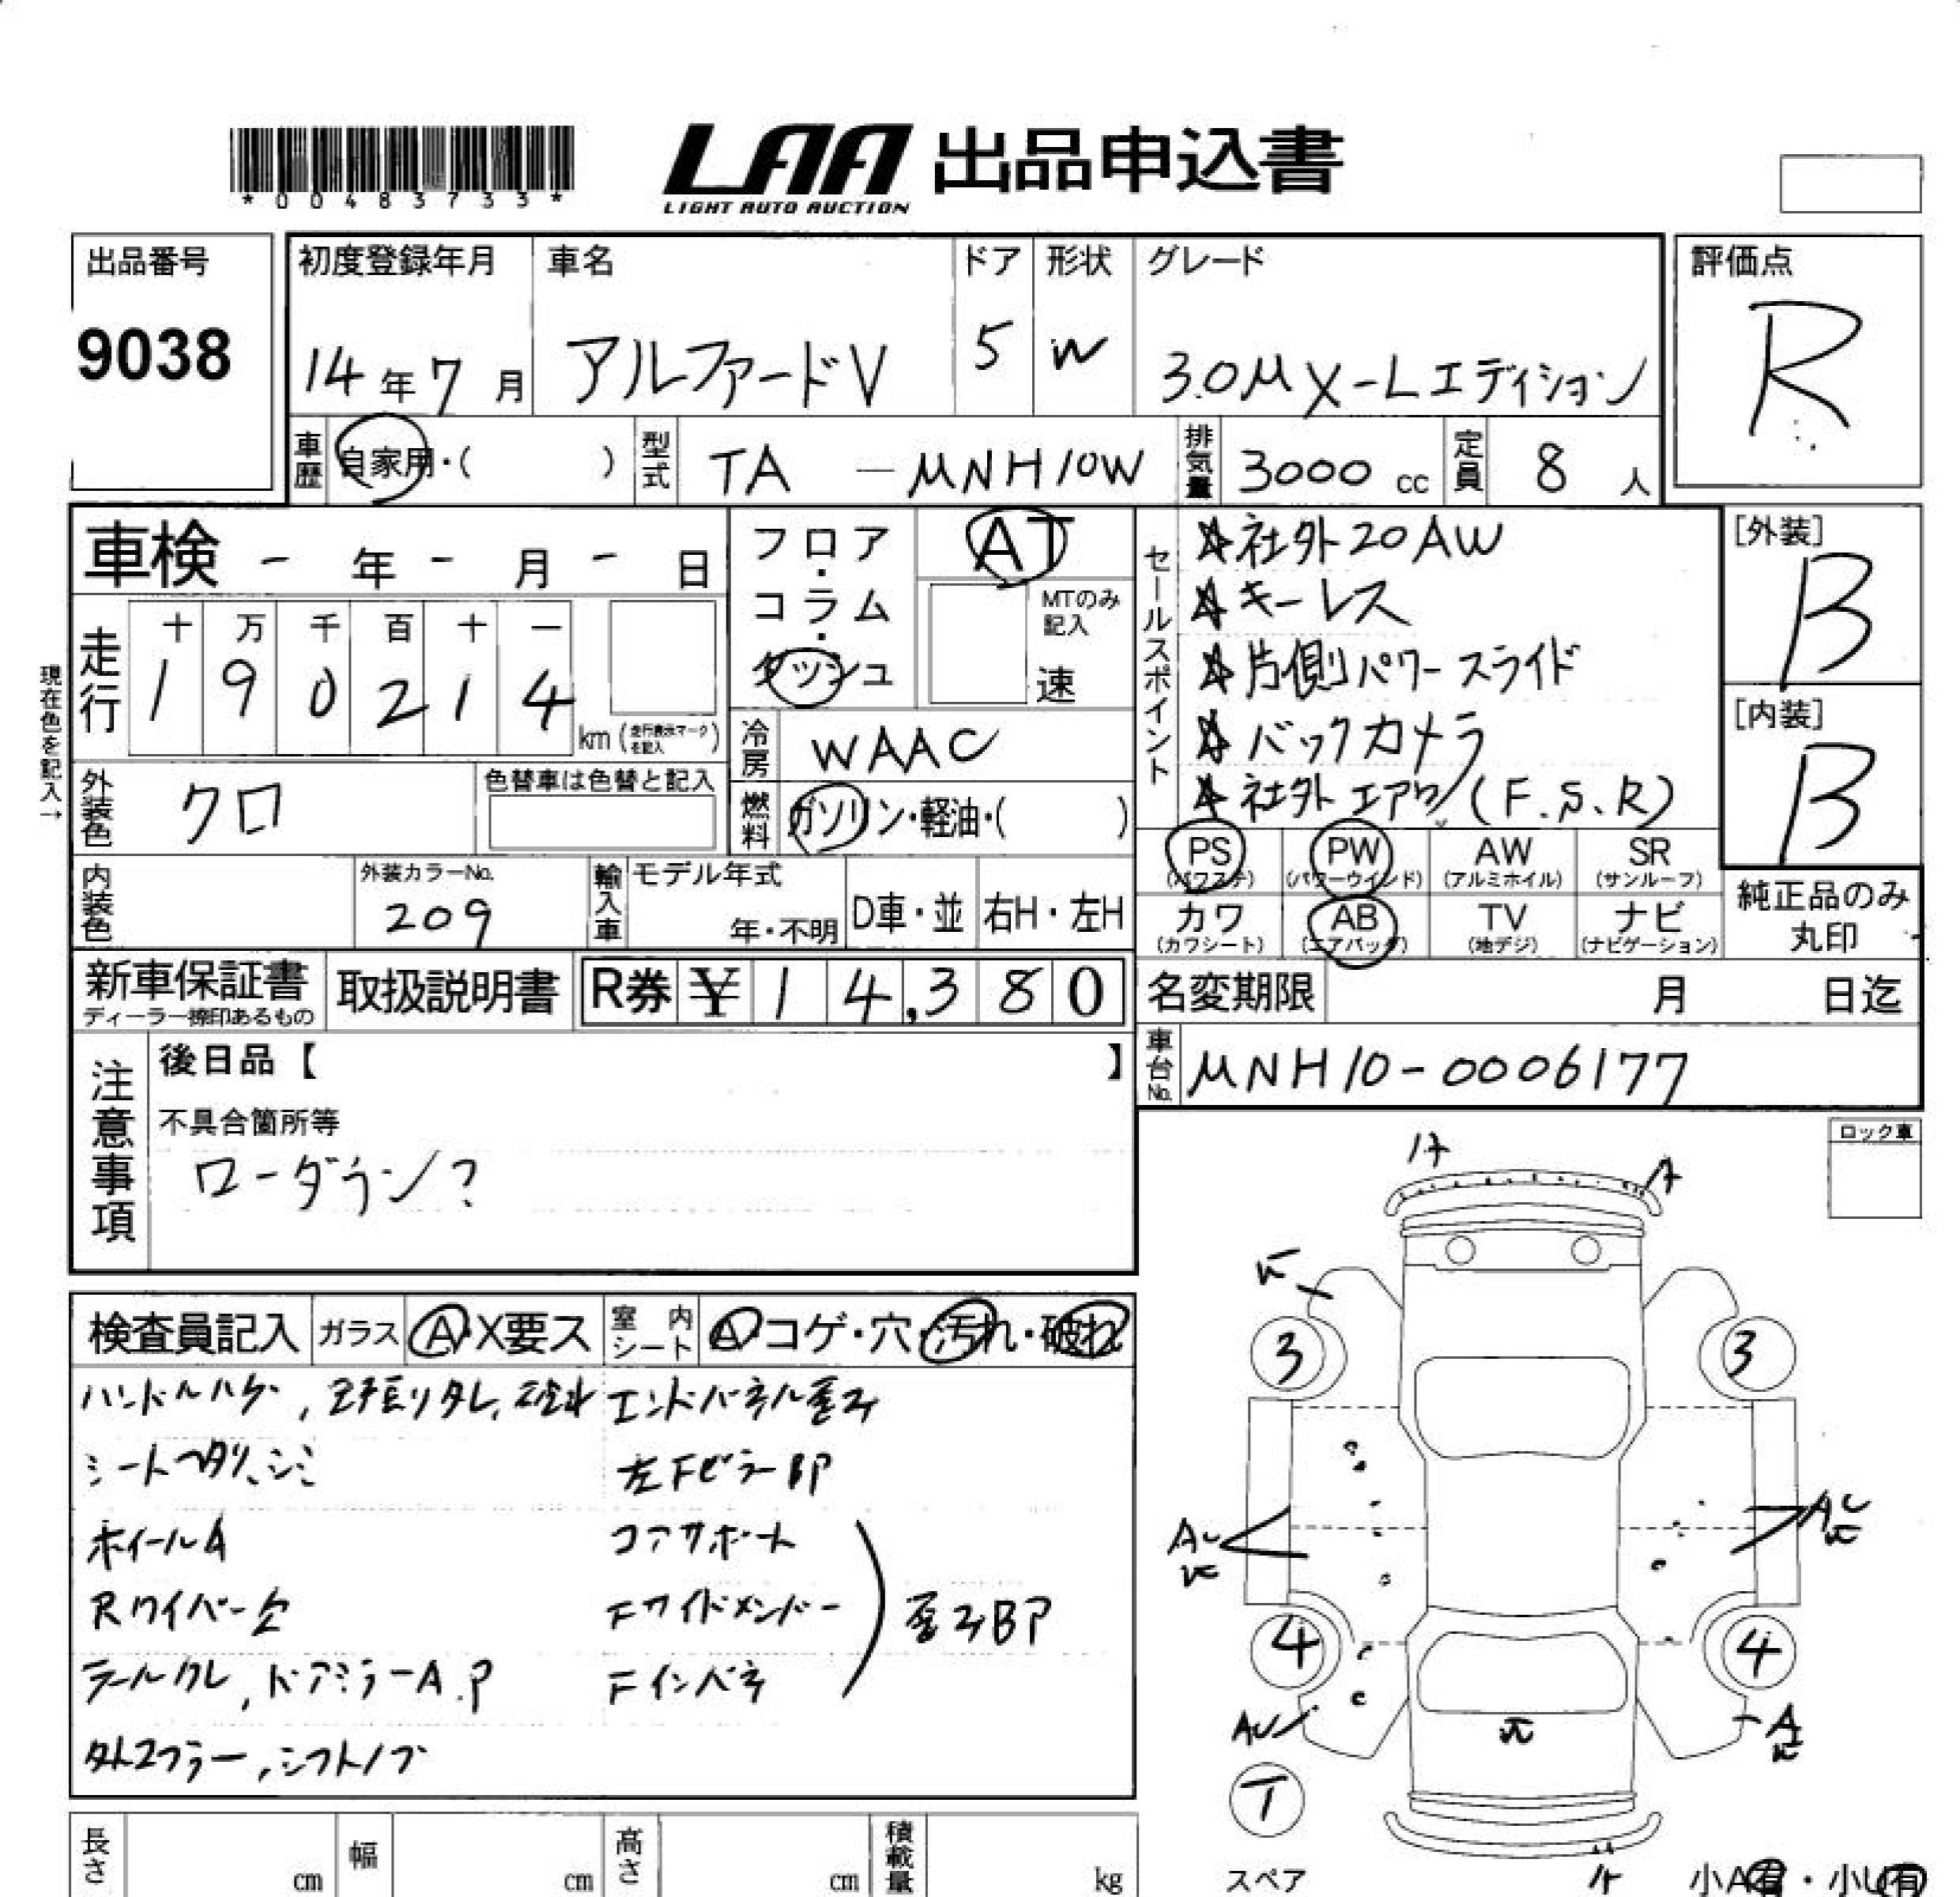 *00483733*
LAA 出品申込書
LIGHT AUTO AUCTION
出品番号
9038
初度登録年月
14年7月
車名
アルファードV
ドア
5
形状
W
グレード
3.0MX-Lエディション
評価点
R
車歴 自家用・( )
型式 TA-MNH10W
排気量 3000cc
定員 8人
車検 - 年 - 月 - 日
フロア・コラム・ダッシュ
AT
MTのみ記入
速
セールスポイント
☆社外20AW
☆キーレス
☆片側パワースライド
☆バックカメラ
☆社外エアロ(F.S.R)
[外装]
B
[内装]
B
現在色を記入→
走行
十 万 千 百 十 一
1 9 0 2 1 4 km(走行表示マークを記入)
冷房 WAAC
外装色 クロ
色替車は色替と記入
燃料 ガソリン・軽油・( )
PS (パワステ)
PW (パワーウインド)
AW (アルミホイル)
SR (サンルーフ)
内装色
外装カラーNo.
209
輸入車
モデル年式
年・不明
D車・並
右H・左H
カワ (カワシート)
AB (エアバッグ)
TV (地デジ)
ナビ (ナビゲーション)
純正品のみ丸印
新車保証書
ディーラー捺印あるもの
取扱説明書
R券 ¥14,380
名変期限 月 日迄
車台No. MNH10-0006177
注意事項
後日品【 】
不具合箇所等
ローダウン?
ロック車
検査員記入 ガラス A・X要ス 室内シート A・コゲ・穴・汚れ・破れ
ハンドルハゲ, エンドパネル歪み
シートヘタリ、シミ 左Fピラー BP
ホイールA コアサポート
Rワイパー欠 Fサイドメンバー 歪みBP
テールワレ, ドアミラーA.P Fインパネ
外マフラー, シフトノブ
A
A
3
3
AU
AU
4
4
AU
A
T
スペア
小A有・小U有
長さ cm
幅 cm
高さ cm
積載量 kg